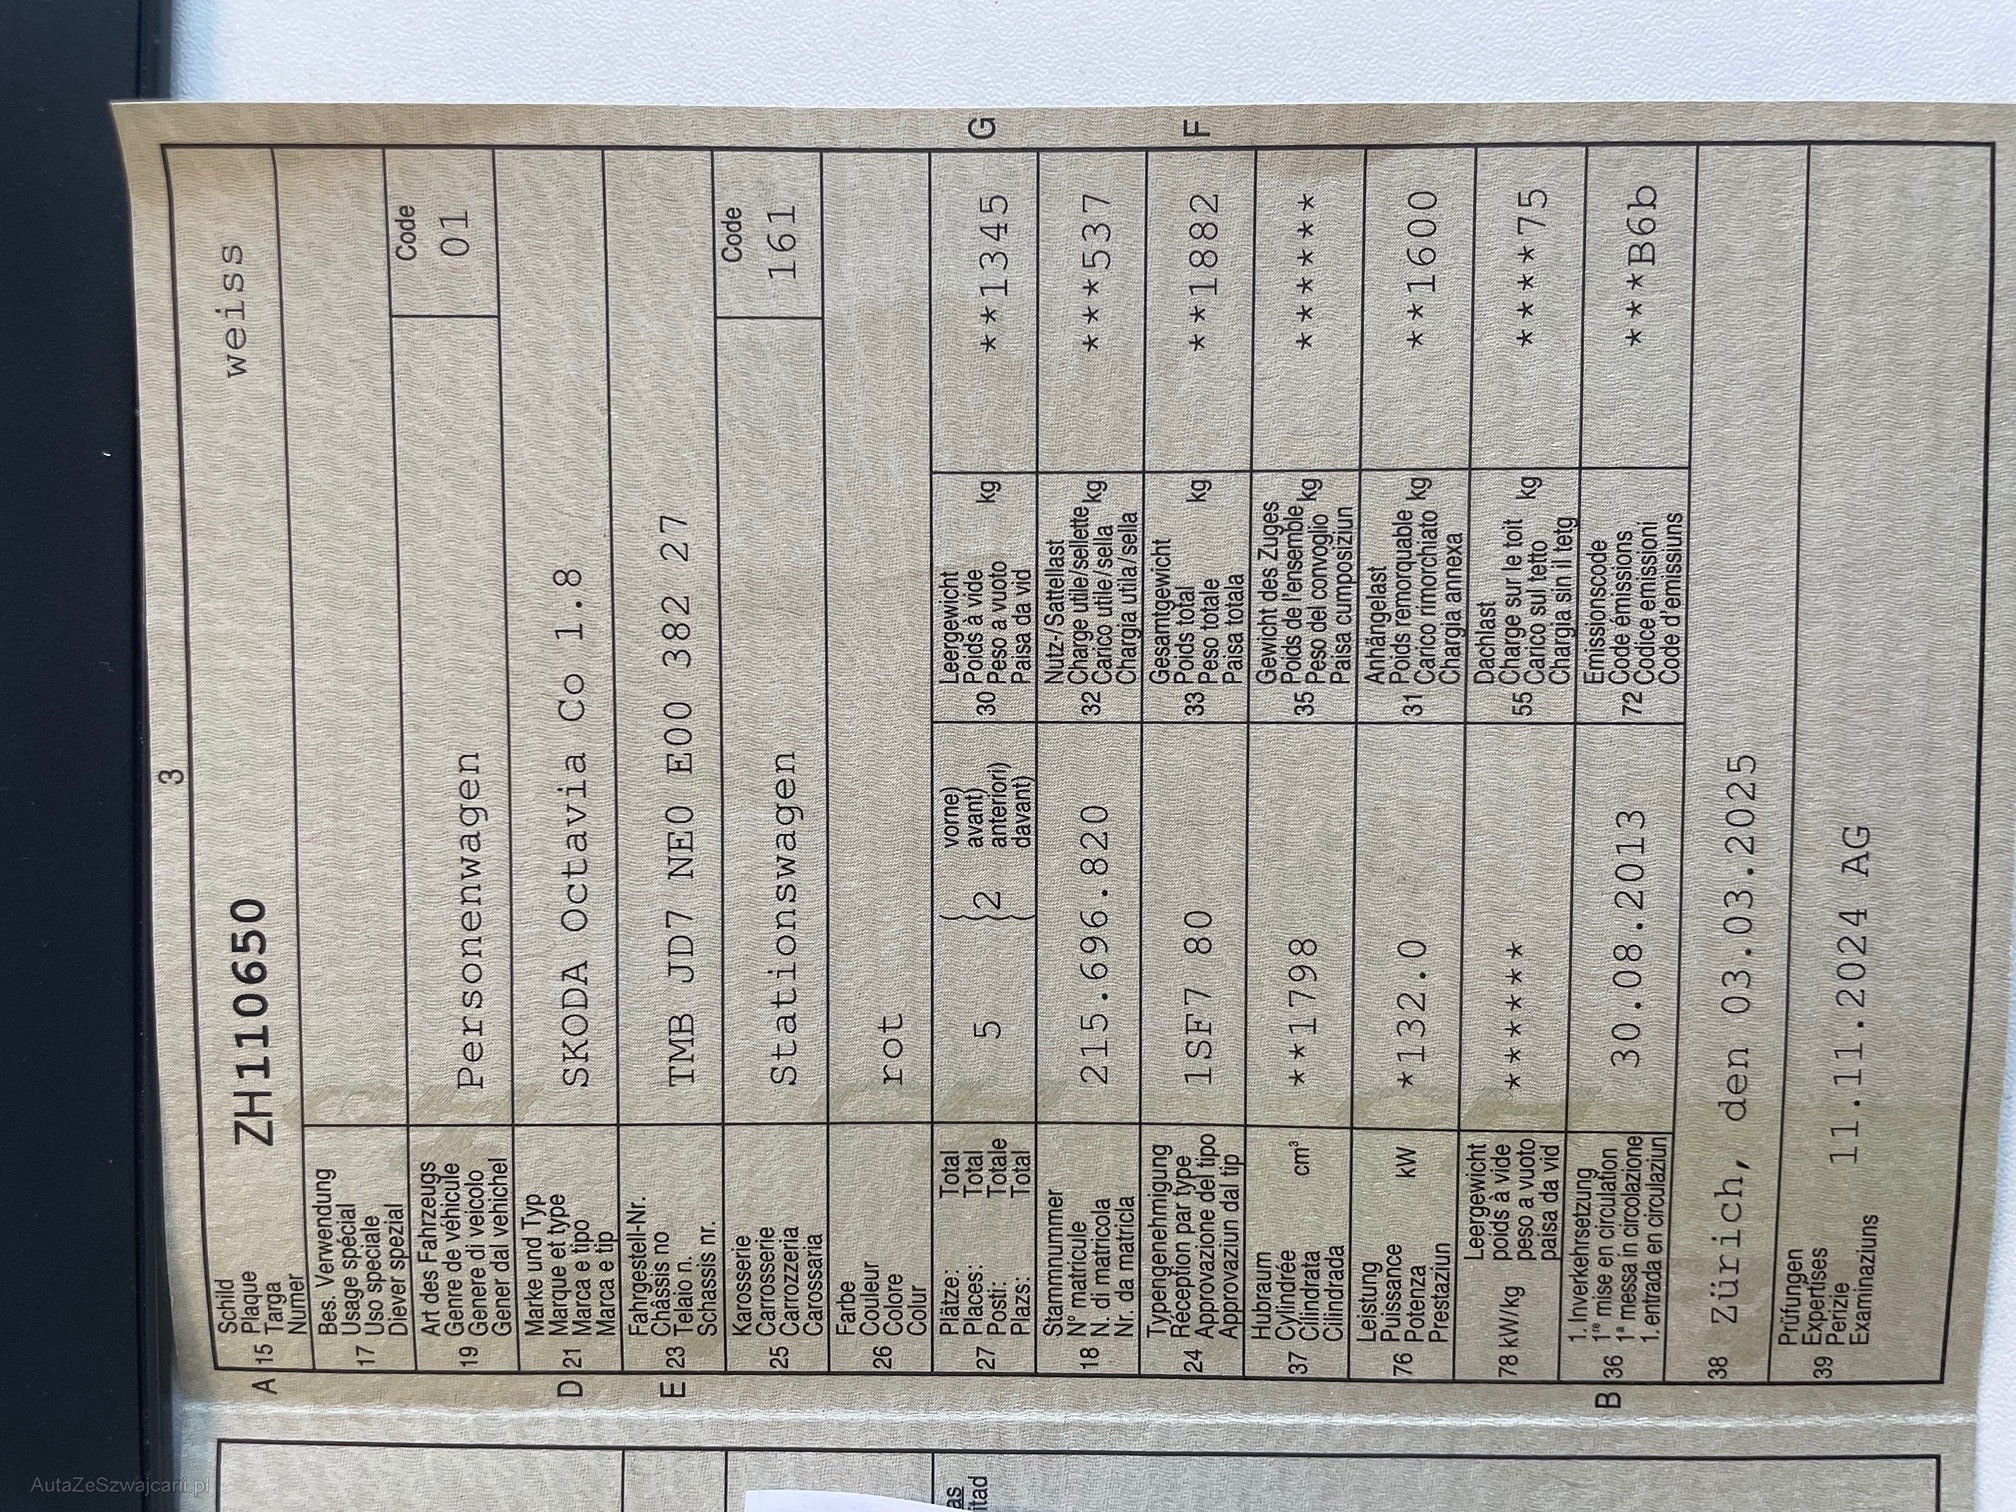 3
A 15 Schild
Plaque
Targa
Numer
ZH110650 weiss
17 Bes. Verwendung
Usage spécial
Uso speciale
Diever spezial
19 Art des Fahrzeugs
Genre de véhicule
Genere di veicolo
Gener dal vehichel
Personenwagen
Code
01
D 21 Marke und Typ
Marque et type
Marca e tipo
Marca e tip
SKODA Octavia Co 1.8
E 23 Fahrgestell-Nr.
Châssis no
Telaio n.
Schassis nr.
TMB JD7 NE0 E00 382 27
25 Karosserie
Carrosserie
Carrozzeria
Carossaria
Stationswagen
Code
161
26 Farbe
Couleur
Colore
Colur
rot
27 Plätze: Total
Places: Total
Posti: Totale
Plazs: Total
5 (2 vorne)
avant)
anteriori)
davant)
30 Leergewicht
Poids à vide
Peso a vuoto
Paisa da vid
kg
**1345 G
18 Stammnummer
N° matricule
N. di matricola
Nr. da matricla
215.696.820
32 Nutz-/Sattellast
Charge utile/sellette
Carico utile/sella
Chargia utila/sella
kg
***537
24 Typengenehmigung
Réception par type
Approvazione del tipo
Approvaziun dal tip
1SF7 80
33 Gesamtgewicht
Poids total
Peso totale
Paisa totala
kg
**1882 F
37 Hubraum
Cylindrée
Cilindrata
Cilindrada
cm³
**1798
35 Gewicht des Zuges
Poids de l'ensemble
Peso del convoglio
Paisa cumposiziun
kg
******
76 Leistung
Puissance
Potenza
Prestaziun
kW
*132.0
31 Anhängelast
Poids remorquable
Carico rimorchiato
Chargia annexa
kg
**1600
78 kW/kg Leergewicht
poids à vide
peso a vuoto
paisa da vid
******
55 Dachlast
Charge sur le toit
Carico sul tetto
Chargia sin il tetg
kg
****75
B 36 1. Inverkehrsetzung
1re mise en circulation
1a messa in circolazione
1. entrada en circulaziun
30.08.2013
72 Emissionscode
Code émissions
Codice emissioni
Code d'emissiuns
***B6b
38 Zürich, den 03.03.2025
39 Prüfungen
Expertises
Perizie
Examinaziuns
11.11.2024 AG
AutaZeSzwajcarii.pl